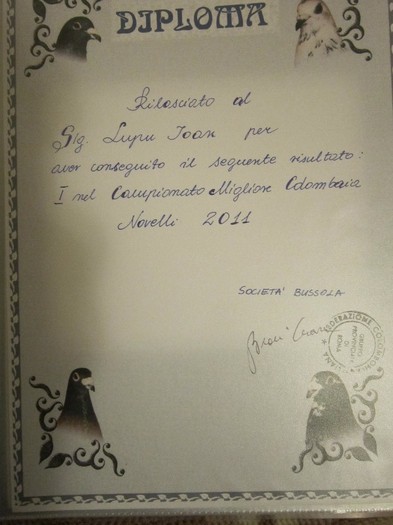 DIPLOMA
Rilasciato al
Sig. Lupu Ioan per
aver conseguito il seguente risultato:
I nel Campionato Migliore Colombaia
Novelli 2011
SOCIETA' BUSSOLA
FEDERAZIONE COLOMBOFILA
GRUPPO
PROVINCIALE
DI
ROMA